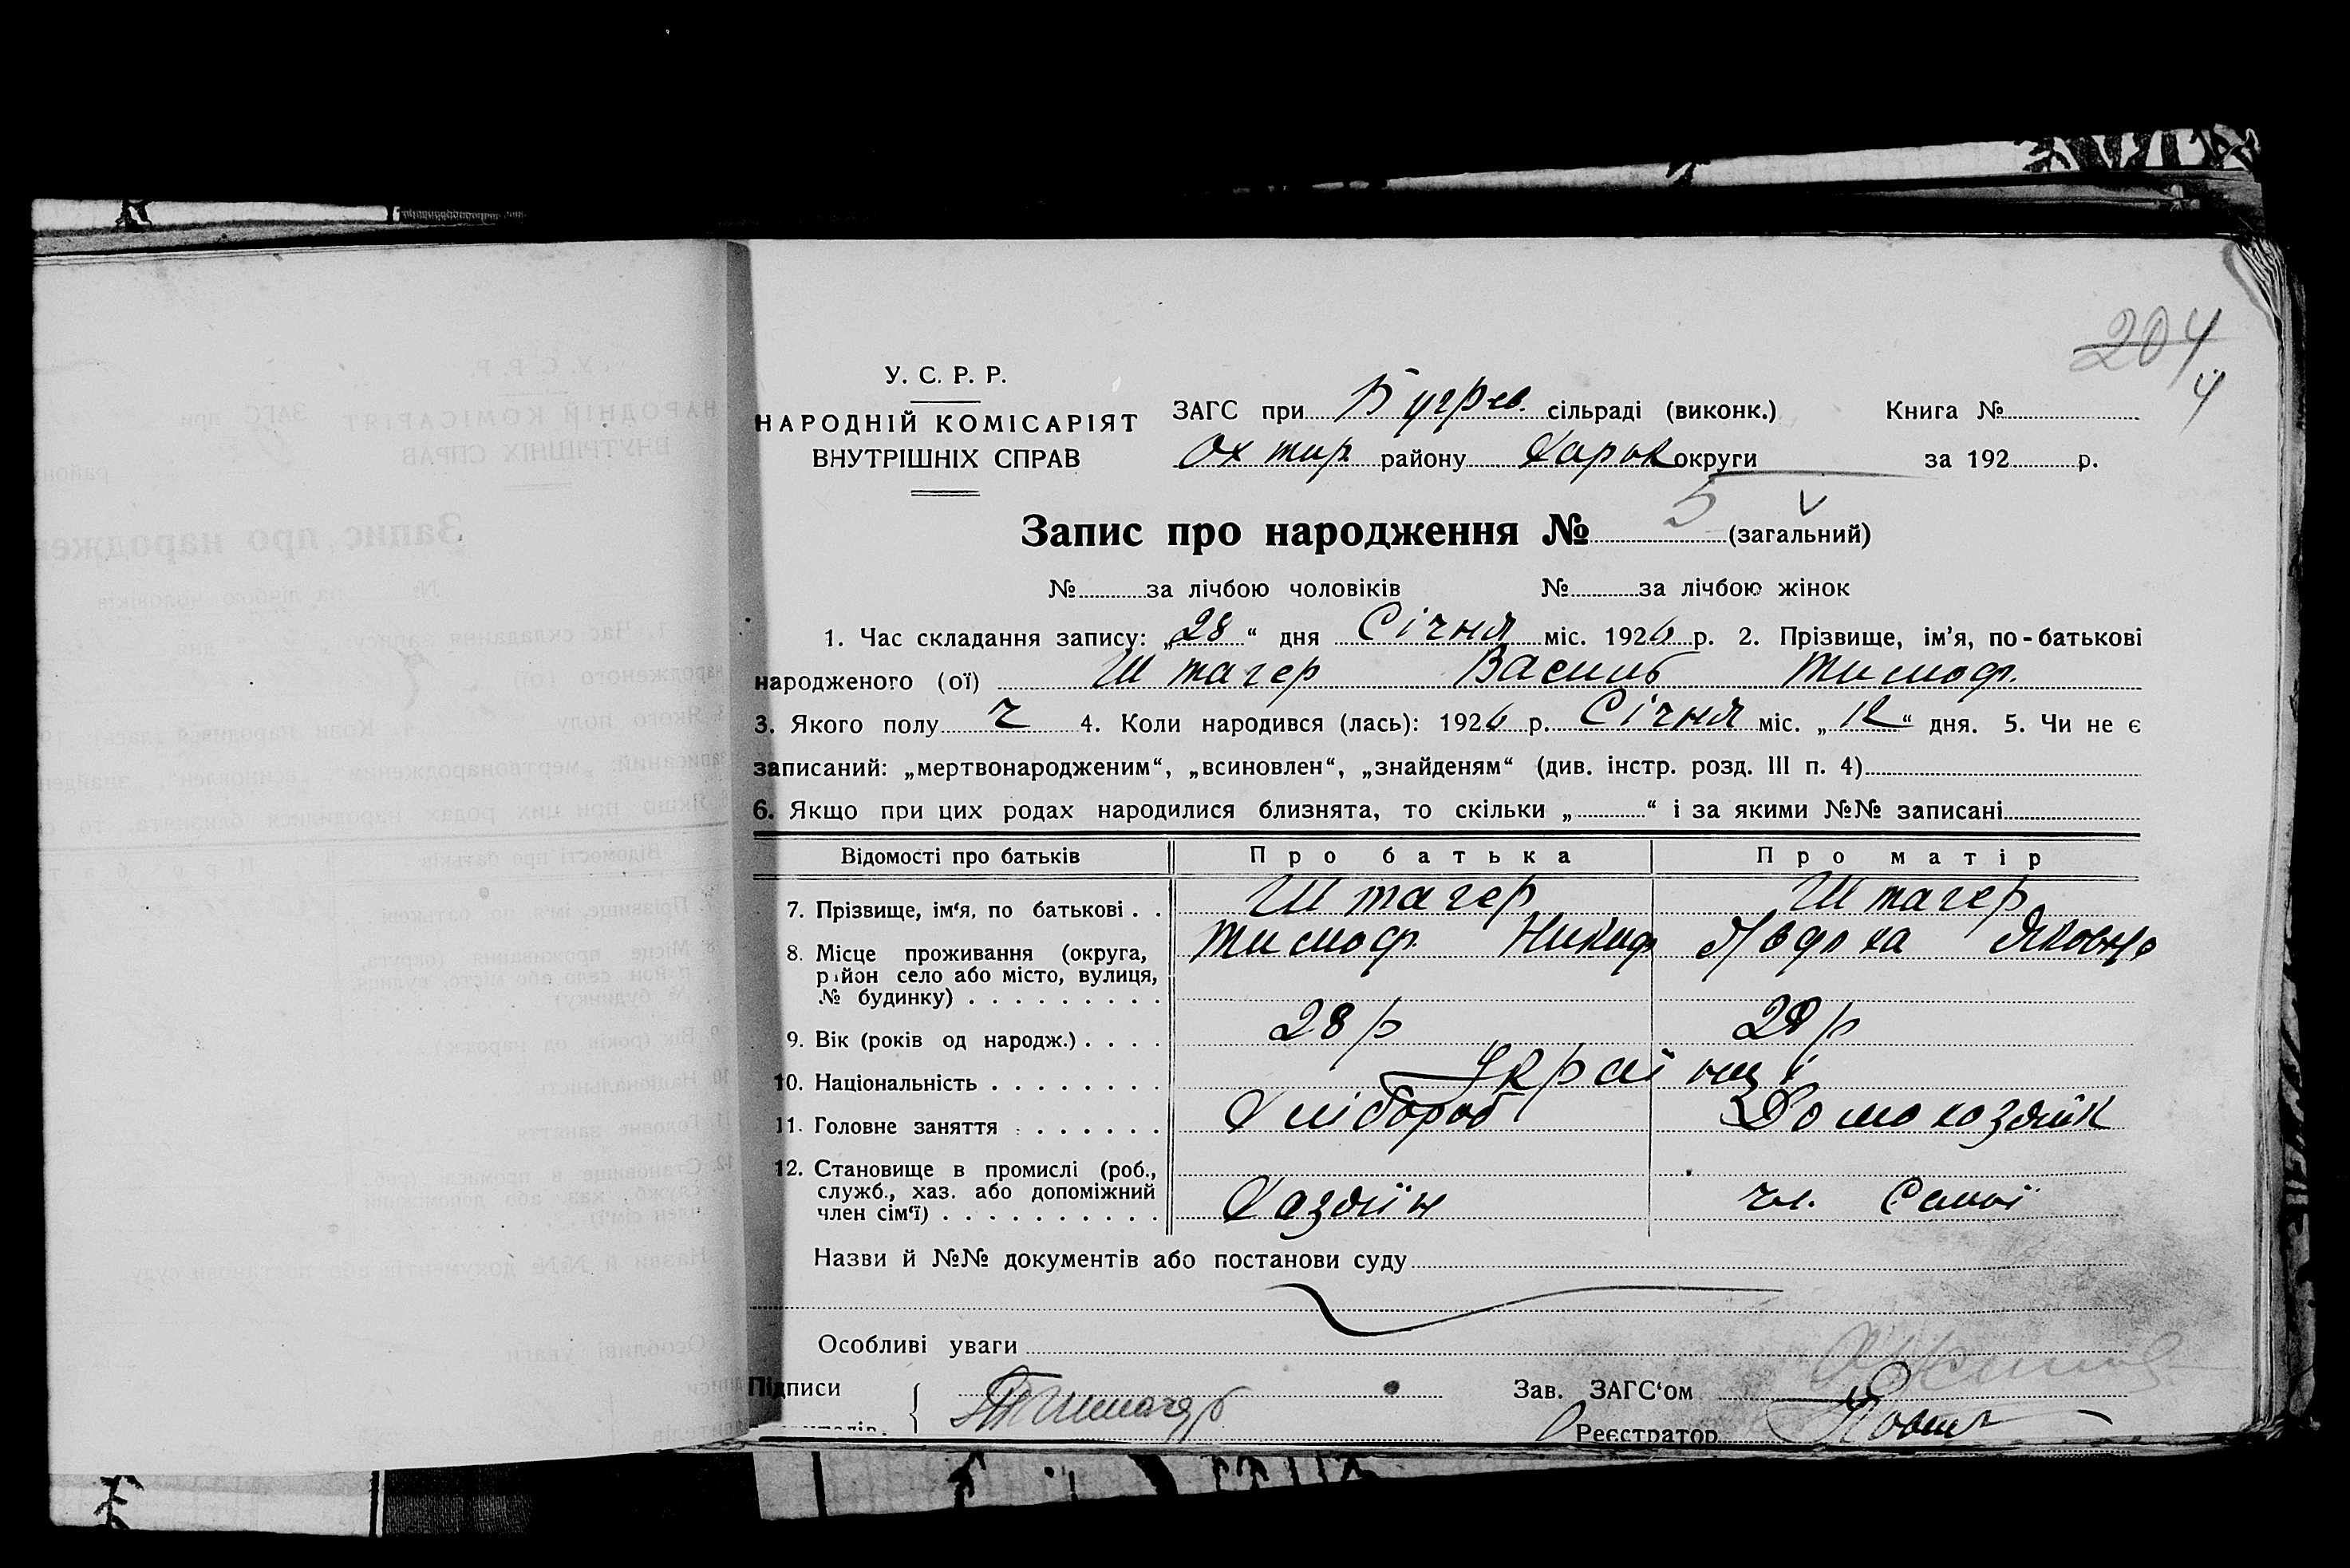 204
4
У. С. Р. Р.
НАРОДНІЙ КОМІСАРІЯТ
ВНУТРІШНІХ СПРАВ
ЗАГС при Бугрев. сільраді (виконк.) Книга №
Охтир. району Харьк округи за 192 р.
Запис про народження № 5 (загальний)
№ за лічбою чоловіків № за лічбою жінок
1. Час складання запису: „28“ дня Січня міс. 1926 р. 2. Прізвище, ім’я, по-батькові
народженого (ої) Штагер Василь Тимоф.
3. Якого полу ч 4. Коли народився (лась): 1926 р. Січня міс. „12“ дня. 5. Чи не є
записаний: „мертвонародженим“, „всиновлен“, „знайденям“ (див. інстр. розд. III п. 4)
6. Якщо при цих родах народилися близнята, то скільки „ “ і за якими №№ записані
Відомості про батьків Про батька Про матір
7. Прізвище, ім‘я, по батькові . . Штагер Штагер
8. Місце проживання (округа, Тимоф. Никиф Яковна
район село або місто, вулиця,
№ будинку) . . . . . . . . .
9. Вік (років од народж.) . . . . 28 р р
10. Національність . . . . . . . . Українці
11. Головне заняття . . . . . . . Хлібороб Домохозяйк
12. Становище в промислі (роб.,
служб., хаз. або допоміжний
член сім‘ї) . . . . . . . . . . Хазяїн чл. Семї
Назви й №№ документів або постанови суду
Особливі уваги
Підписи Зав. ЗАГС‘ом
Реєстратор